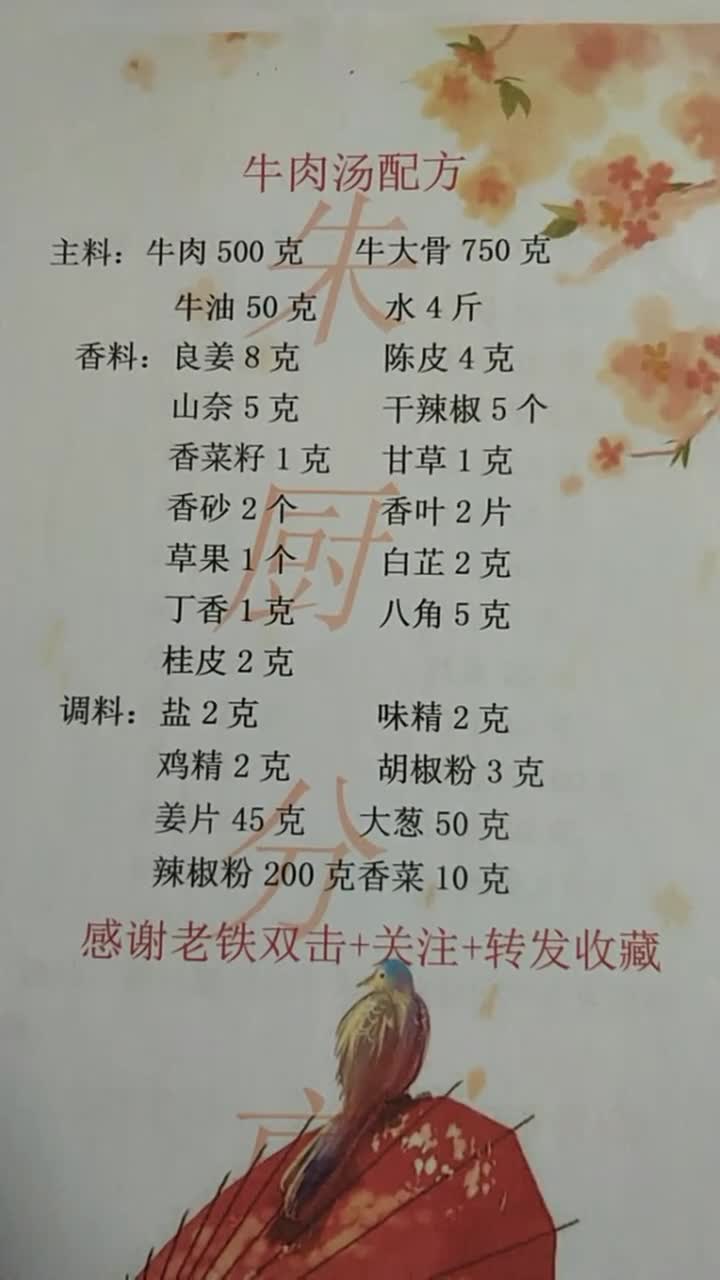 牛肉汤配方
主料：牛肉 500 克 牛大骨 750 克
牛油 50 克 水 4 斤
香料：良姜 8 克 陈皮 4 克
山奈 5 克 干辣椒 5 个
香菜籽 1 克 甘草 1 克
香砂 2 个 香叶 2 片
草果 1 个 白芷 2 克
丁香 1 克 八角 5 克
桂皮 2 克
调料：盐 2 克 味精 2 克
鸡精 2 克 胡椒粉 3 克
姜片 45 克 大葱 50 克
辣椒粉 200 克香菜 10 克
感谢老铁双击+关注+转发收藏
朱
厨
分